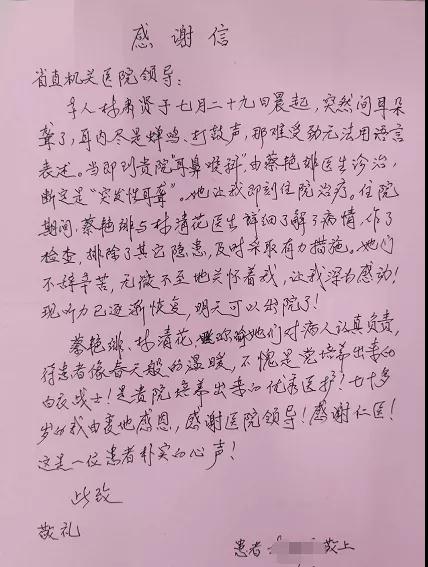 感谢信
省直机关医院领导:
本人林肃贤于七月二十九日晨起,突然间耳朵
聋了,耳内尽是蝉鸣、打鼓声,那难受劲无法用语言
表述。当即到贵院“耳鼻喉科”,由蔡艳琲医生诊治,
断定是“突发性耳聋”。她让我即刻住院治疗。住院
期间,蔡艳琲与林清花医生详细了解了病情,作了
检查,排除了其它隐患,及时采取有力措施。她们
不辞辛苦,无微不至地关怀着我,让我深为感动!
现听力已逐渐恢复,明天可以出院了!
蔡艳琲、林清花,她们对病人认真负责,
待患者像春天般的温暖,不愧是党培养出来的
白衣战士!是贵院培养出来的优秀医护!七十多
岁的我由衷地感恩,感谢医院领导!感谢仁医!
这是一位患者朴实的心声!
此致
敬礼
患者 敬上